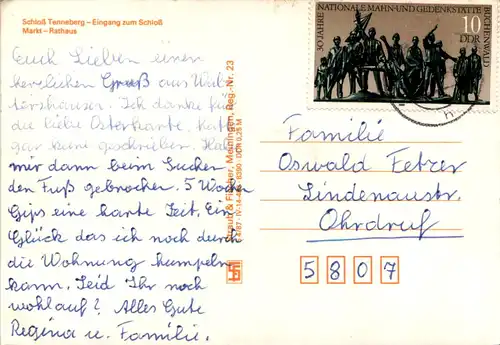 Schloß Tenneberg – Eingang zum Schloß
Markt – Rathaus
Euch Lieben einen
herzlichen Gruß aus Wal-
tershausen. Ich danke für
die liebe Osterkarte.
gar keine geschrieben. Hab
mir dann beim Suchen
den Fuß gebrochen. 5 Wochen
Gips eine harte Zeit. Ein
Glück das ich noch durch
die Wohnung humpeln
kann. Seid Ihr noch
wohlauf? Alles Gute
Regina u. Familie.
Straub & Fischer, Meiningen, Reg.-Nr. 23
IV-14-483 DDR 0,25 M
30 JAHRE NATIONALE MAHN-UND GEDENKSTÄTTE
BUCHENWALD
10
DDR
Familie
Oswald Fetzer
Lindenaustr.
Ohrdruf
5807